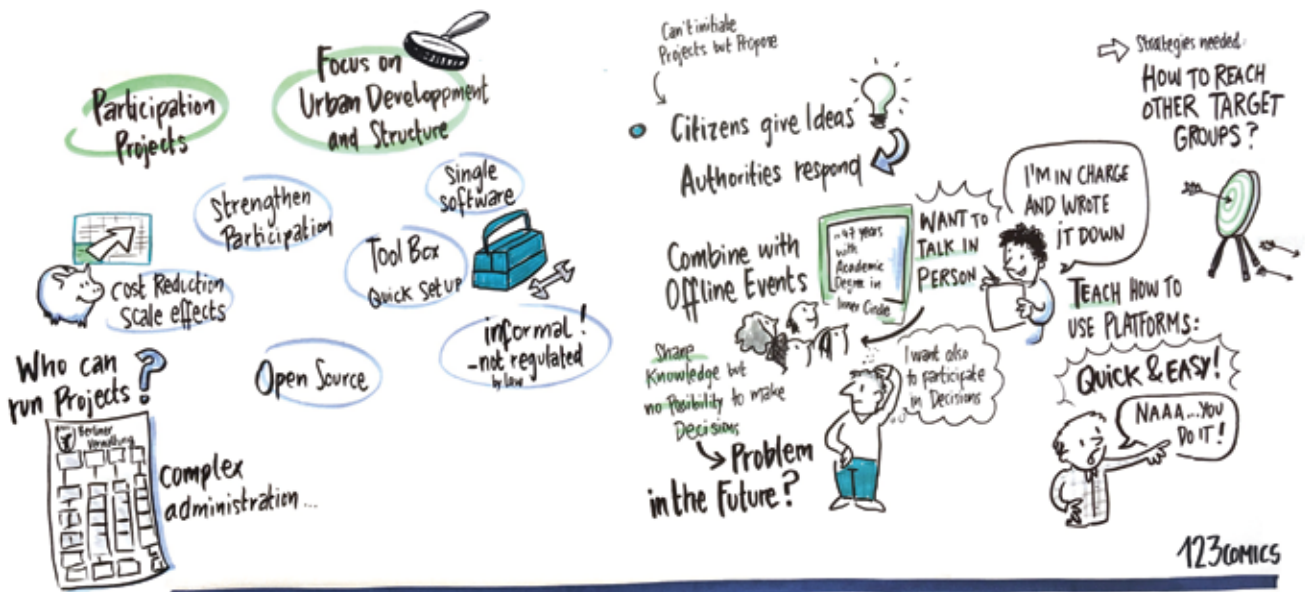 Participation
Projects
Focus on
Urban Developpment
and Structure
Strengthen
Participation
Single
software
Cost Reduction
Scale effects
Tool Box
Quick Setup
informal!
-not regulated
by law
Open Source
Who can
run Projects?
Berliner
Verwaltung
complex
administration...
Can't initiate
Projects but Propose
Citizens give Ideas
Authorities respond
Combine with
Offline Events
~47 years
with
Academic
Degree in
Inner Circle
WANT TO
TALK IN
PERSON
I'M IN CHARGE
AND WROTE
IT DOWN
Share
Knowledge but
no Posibility to make
Decisions
Problem
in the Future?
I want also
to participate
in Decisions
Strategies needed:
HOW TO REACH
OTHER TARGET
GROUPS?
TEACH HOW TO
USE PLATFORMS:
QUICK & EASY!
NAAA...YOU
DO IT!
123COMICS